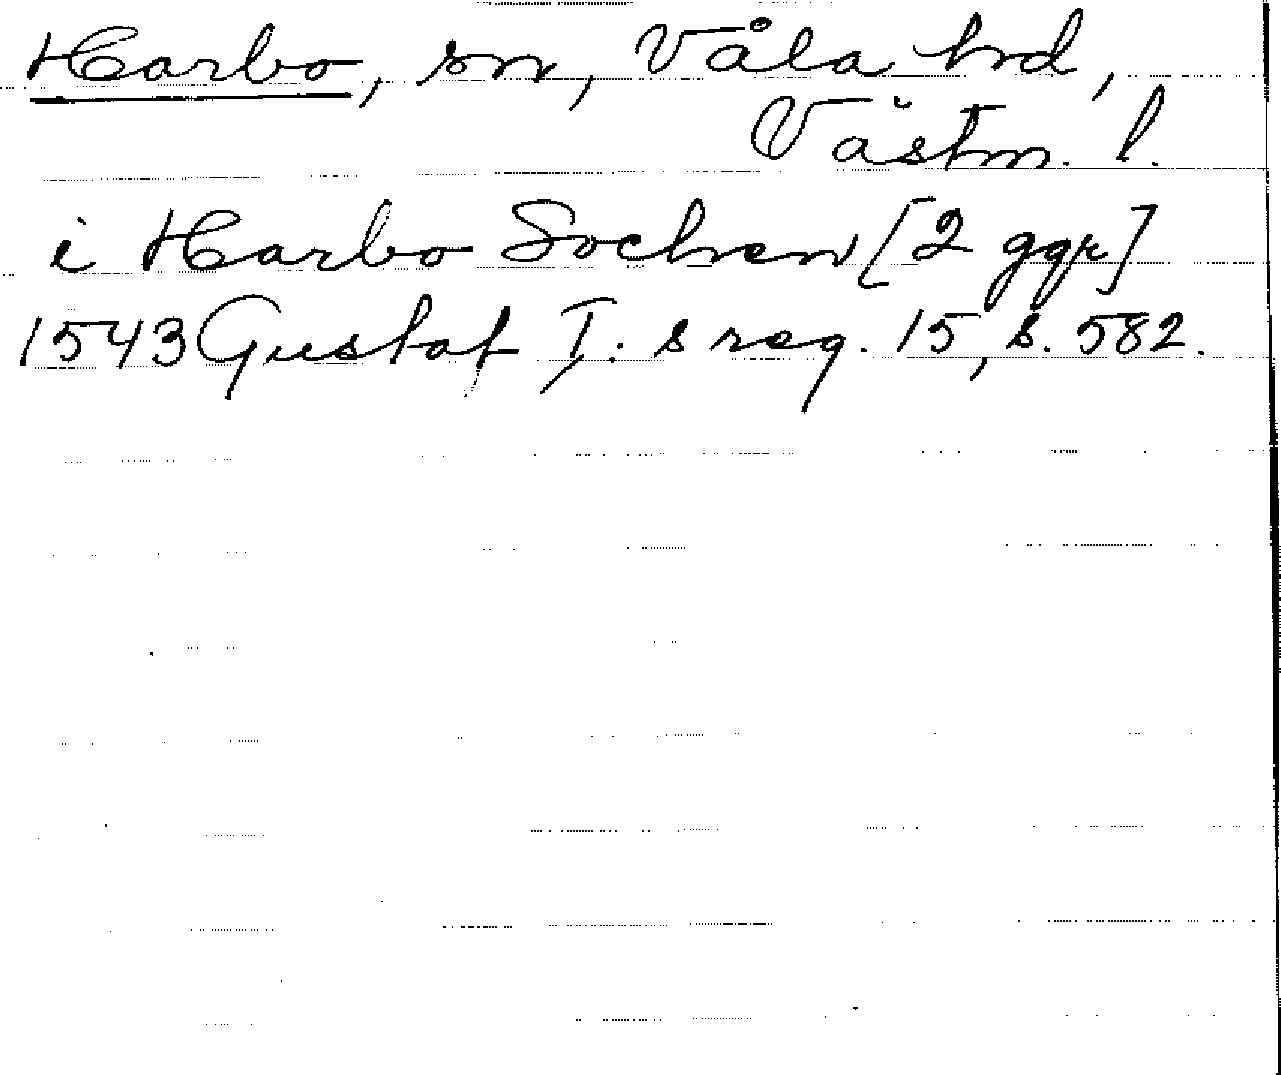 Harbo, sn, Våla hd,
Västm. l.
i Harbo Sochen [2 ggr]
1543 Gustaf I. s reg. 15, s. 582.